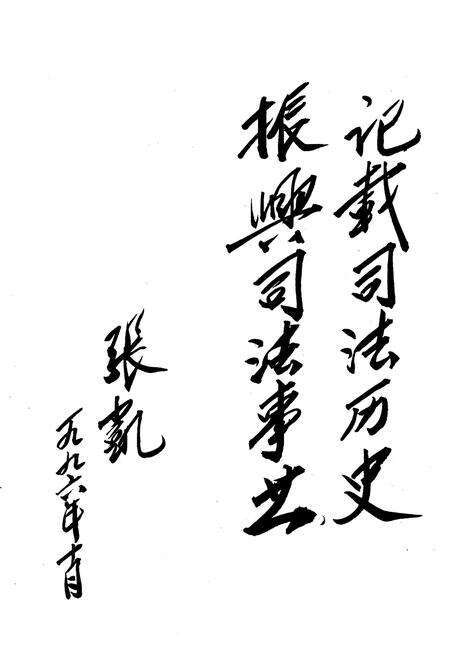 记载司法历史
振興司法事业
张凱
一九九六年十月